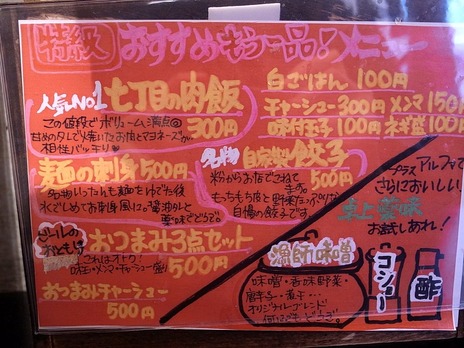 特級 おすすめもう一品！メニュー
人気No1 七丁目の肉飯
300円
この値段でボリューム満点◎
甘めのタレで焼いたお肉とマヨネーズが
相性バッチリ♥
麺の刺身 500円
名物いったんも麺をゆでた後
水でしめてお刺身風に。醤油タレと
薬味でどうぞ。
おつまみ3点セット
500円
これはオトク！
味玉・メンマ・チャーシュー盛り
おつまみチャーシュー
500円
白ごはん 100円
チャーシュー300円 メンマ150円
味付玉子100円 ネギ盛100円
名物 自家製餃子
500円
粉からお店でこねて
もっちもち皮と野菜たっぷりな
自慢の餃子です。
プラスアルファで
さらにおいしい！
卓上薬味
お試しあれ！
漁師味噌
味噌・香味野菜・
唐辛子・煮干…
オリジナルブレンド
コショー
酢